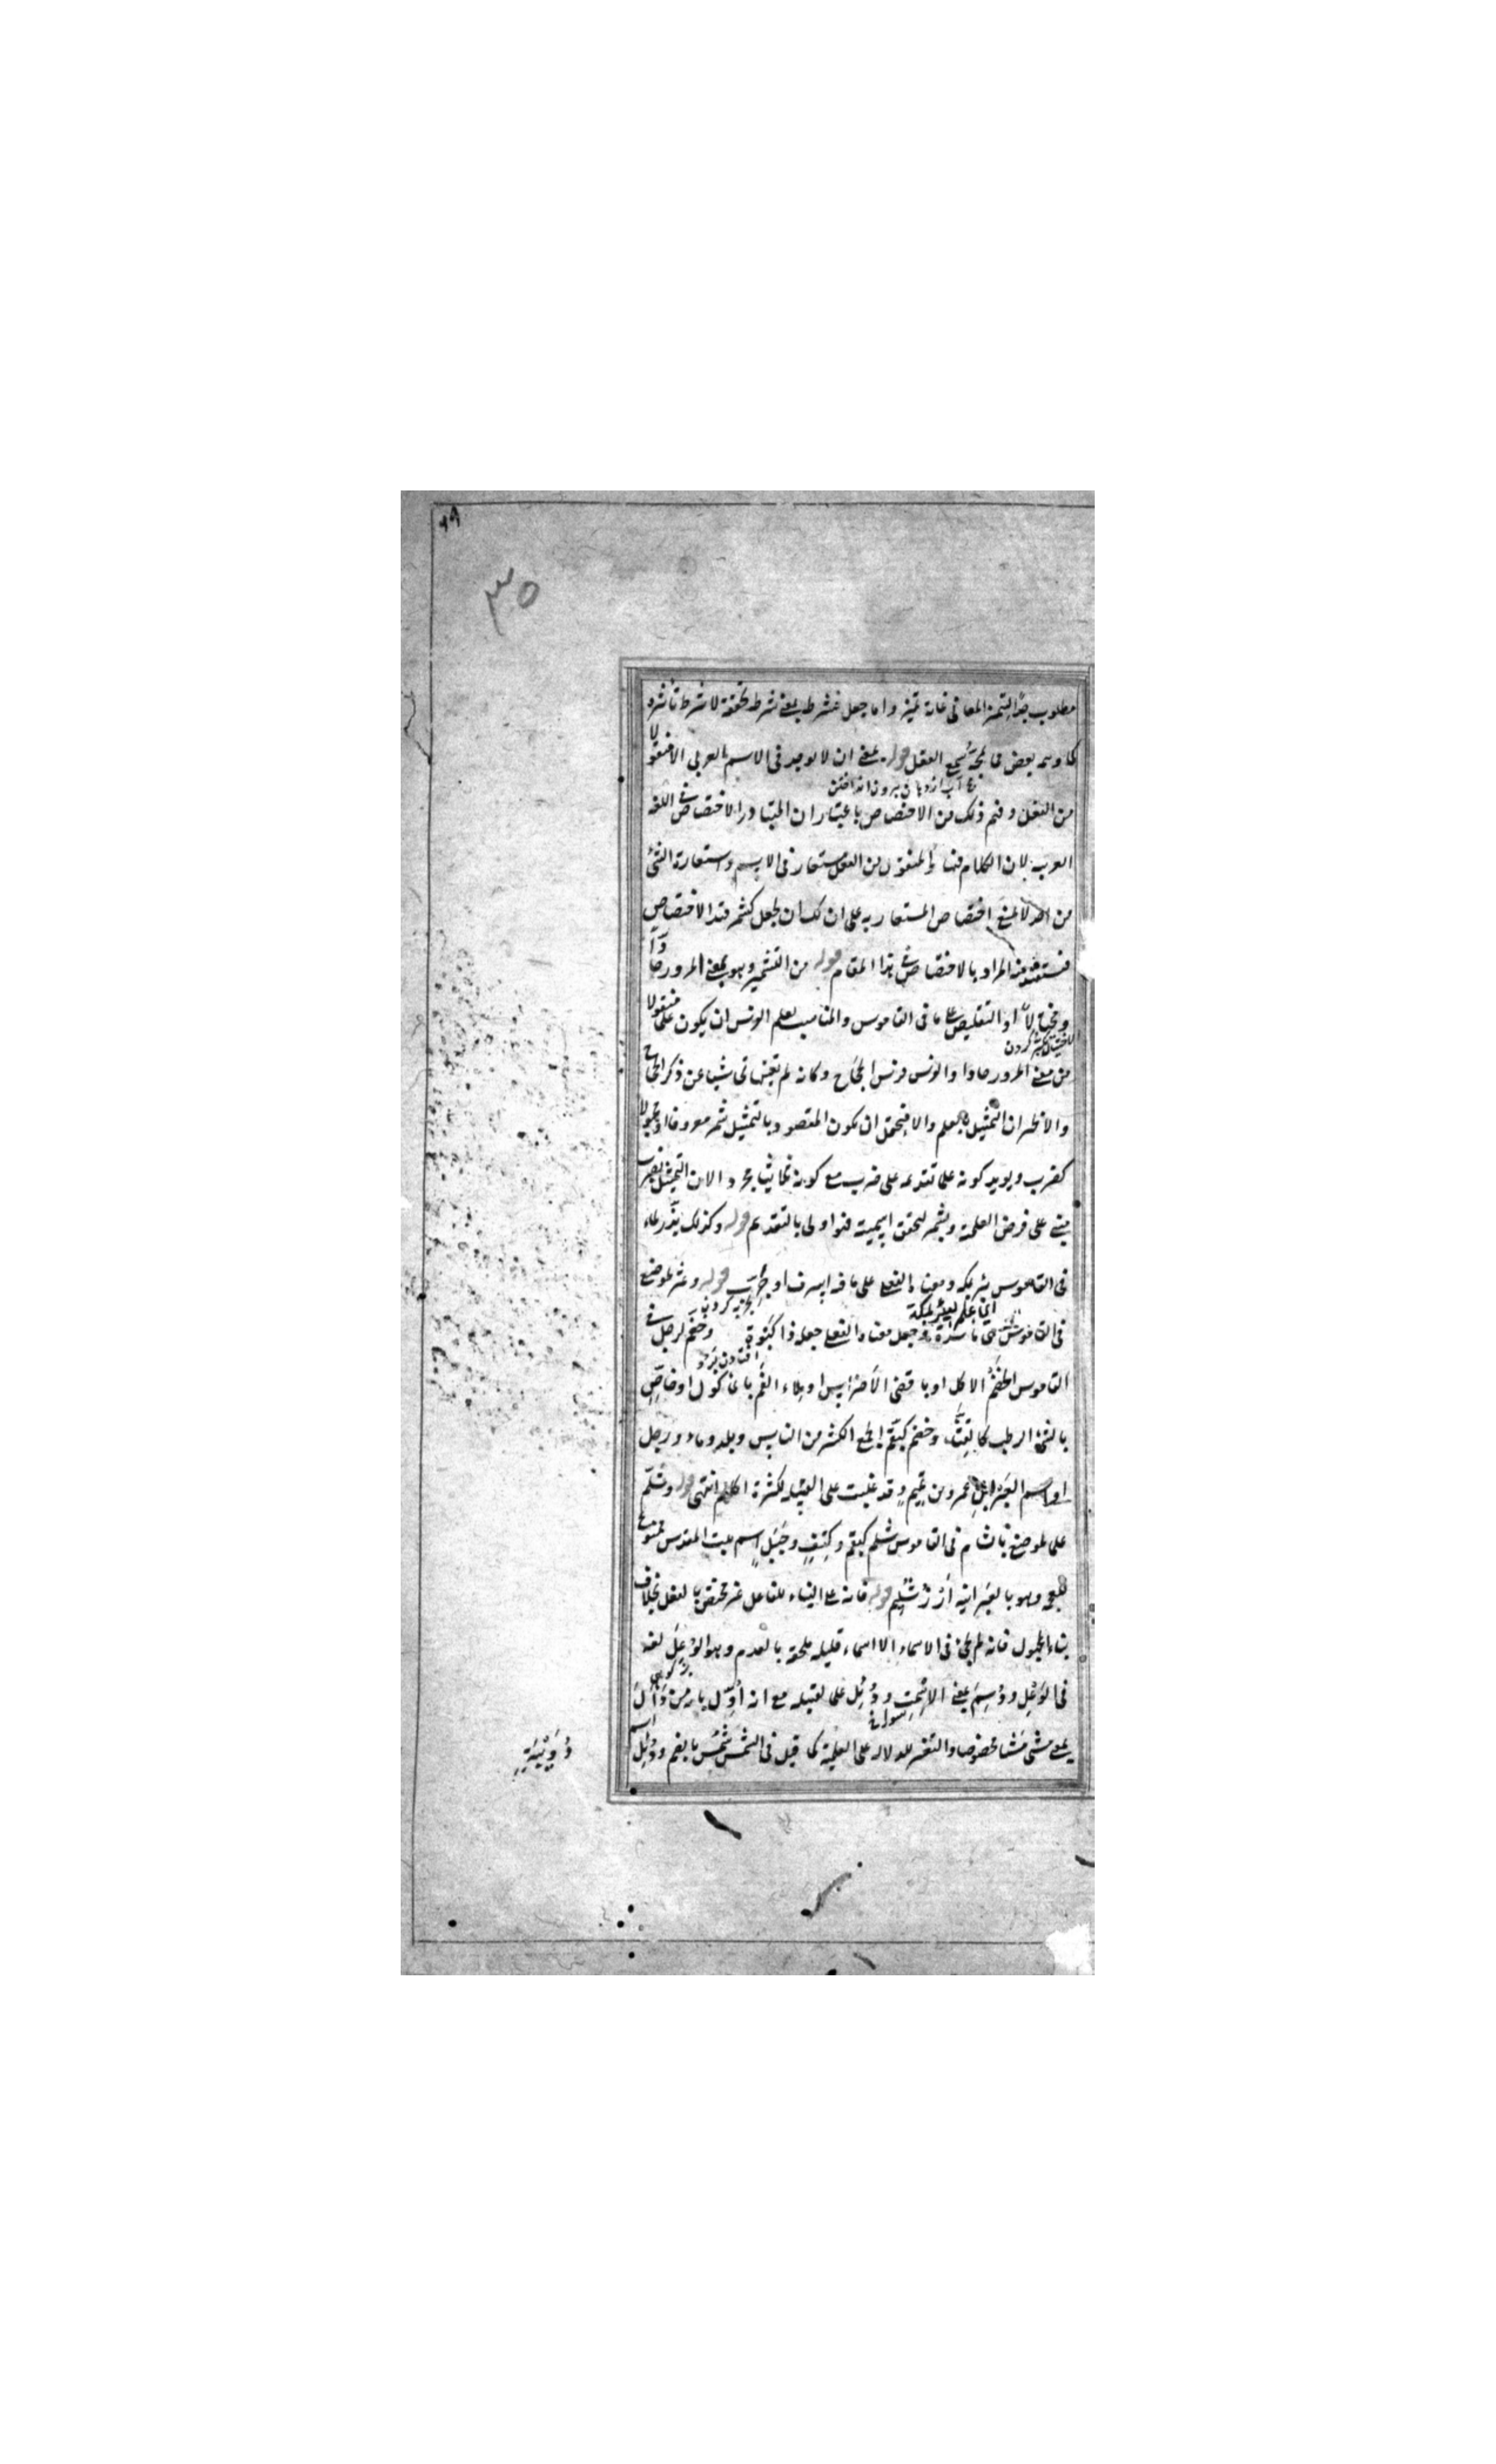 ٦٩
٣٥
مطلوب جدا لتتميز المعاني غاية تميز واما جعل شرط بمعنى شرط تحققه لا شرط تأثيره
كما وسم بعض فما يمجه سمع العقل قوله بمعنى ان لا يوجد في الاسم العربي الا منقولا
آب از دهان بيرون انداختن
من الفعل وفهم ذلك من الاختصاص باعتبار ان المتبادر الاختصاص في اللغة
العربية لان الكلام فيها والمنقول من الفعل مستعار في الاسم واستعارة الشئ
من لا يمنع اختصاص المستعار به على ان لك ان تجعل كشمر قيد الاختصاص
فيستفيد منه المراد بالاختصاص في هذا المقام قوله من التشمير وهو بمعنى المرور جادّا
ومختالا او التقليص على ما في القاموس والمناسب لعلم الفرس ان يكون علما منقولا
الاختيال تكبر كردن
من معنى المرور جادا والفرس فرس الحجاج وكانه لم يعتن بها في شيا عن ذكر الحجاج
والاظهر ان التمثيل بعلم والا فيحتمل ان يكون المقصود بالتمثيل شمر معروفا او مجهولا
كضرب ويؤيد كونه علما تقديمه على ضرب مع كونه ثلاثيا مجردا لان التمثيل بضرب
يبتنى على فرض العلمية وبشمر لتحقق اسميته فهو اولى بالتقديم قوله وكذلك بذّر لماء
في القاموس بئر بمكة ومعناه الفعلى على ما فيه اسرف او جرّب قوله وعثر لموضع
ايضا علم لبئر بمكة
تجربه كردن
في القاموس هي ماسدة وجعل معناه الفعلى جعله ذا كبوة وخضم لرجل في
افتادن برو
القاموس الخضم الاكل او باقصى الاضراس او ملاء الفم بالماكول او خاصّ
بالشئ الرطب كالقثّاء وخضم كبقم الجمع الكثير من الناس وبلد وماء ورجل
او اسم العنبر ابن عمرو بن تميم وقد غلبت على القبيلة لكثرة اكلهم انتهى قوله وشلّم
علما لموضع بالشام في القاموس شلم كبقم وكتف وجبل اسم بيت المقدس ممنوع
للعجمة وهو بالعبرانية أورشليم قوله فانه على البناء للفاعل غير مختص بالفعل بخلاف
بناء المجهول فانه لم يجئ في الاسماء الا اسماء قليلة ملحقة بالعدم وهو الوُعِل لغة
بز كوهى
في الوَعِل ودُسِم بمعنى الاست ودُئِل علما لقبيلة مع انه أوِّل بانه من دَأَلَ
بمعنى مشى مشيا مخصوصا والتغيير للدلالة على العلمية كما قيل في الشمس شُمس بالضم ودُئِل اسم
دُوَيْبِيَّةٍ